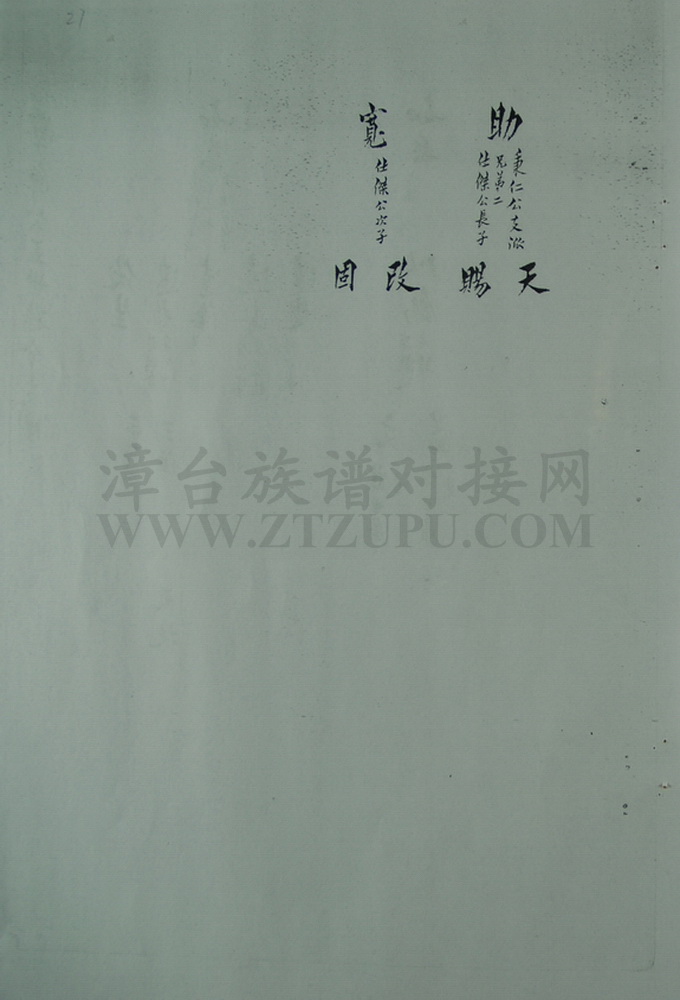 21
助
秉仁公支派
兄弟二
仕傑公長子
天
賜
寬
仕傑公次子
改
固
漳台族谱对接网
WWW.ZTZUPU.COM